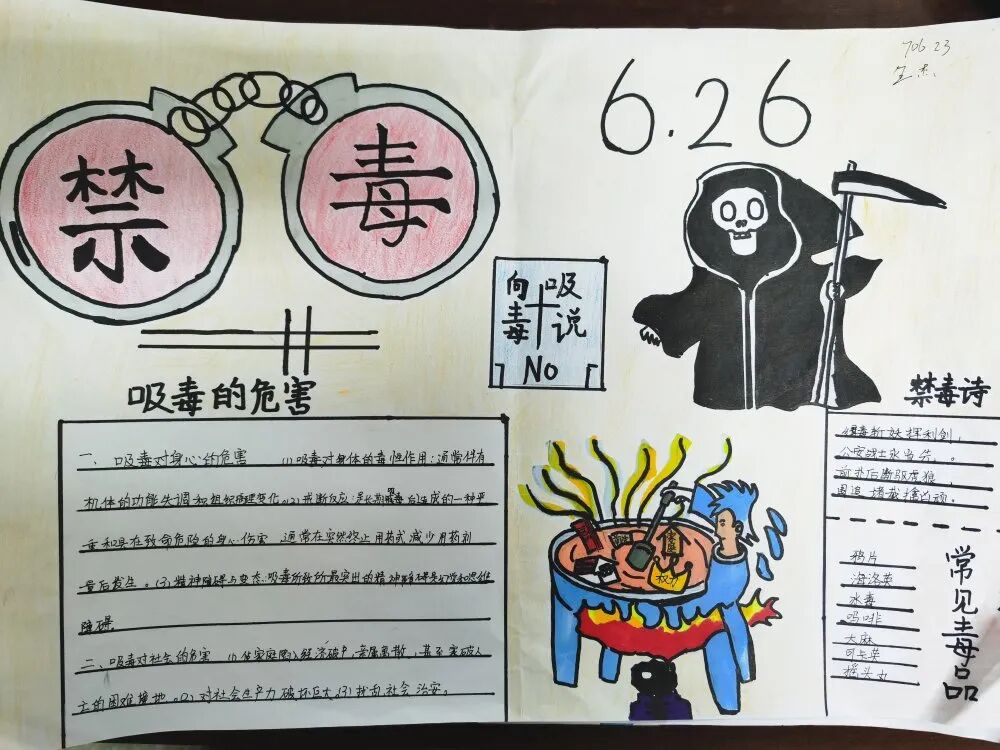 禁毒
6.26
706 23
向吸
毒说
No
吸毒的危害
一、吸毒对身心的危害 (1)吸毒对身体的毒性作用:通常伴有
机体的功能失调和组织病理变化。(2)戒断反应:是长期吸毒后造成的一种严
重和具有致命危险的身心伤害 通常在突然终止用药或减少用药剂
量后发生。(3)精神障碍与变态:吸毒所致所最突出的精神障碍是幻觉和思维
障碍
二、吸毒对社会的危害 (1)
经济破产,亲属离散,甚至家破人
亡的困难境地。(2)对社会生产力破坏巨大(3)扰乱社会治安。
权力
禁毒诗
缉毒斩妖挥利剑,
公安战士永当先。
前抄后断驱虎狼,
围追堵截擒凶顽。
常见毒品
鸦片
海洛英
冰毒
吗啡
大麻
可卡英
摇头丸